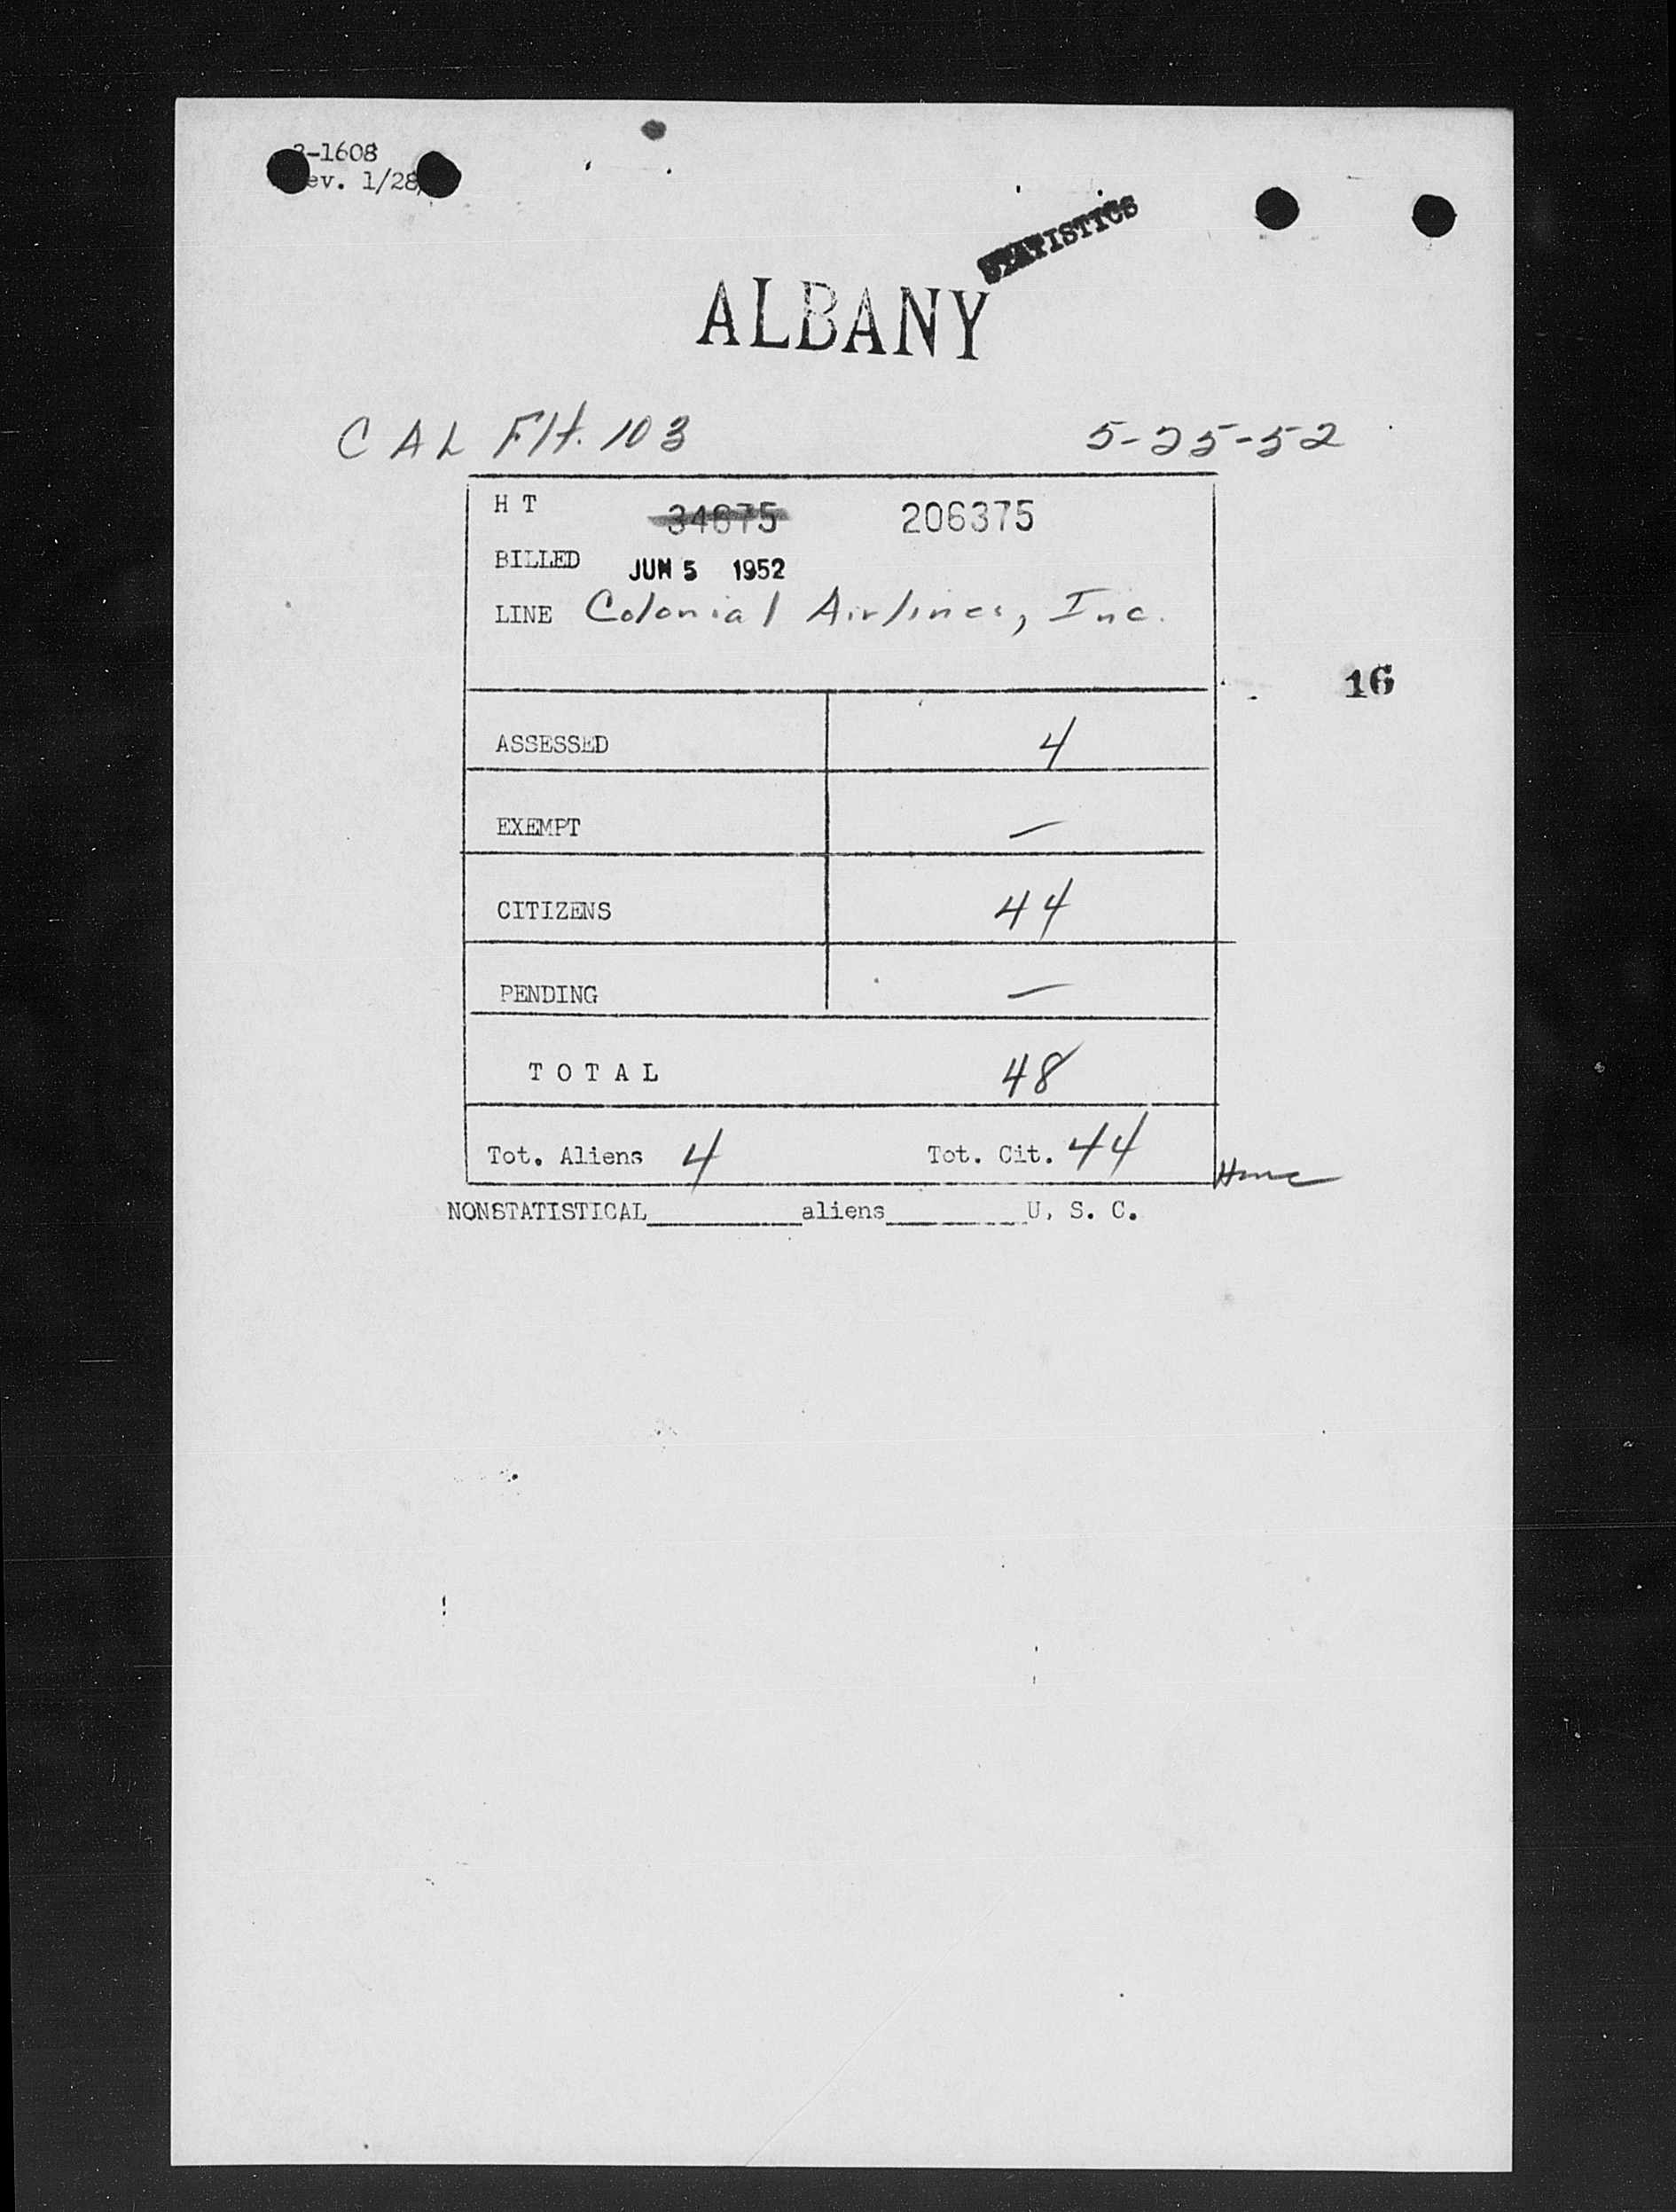 -1608
ev. 1/28
STATISTICS
ALBANY
CAL Flt. 103 5-25-52
H T 34675 206375
BILLED JUN 5 1952
LINE Colonial Airlines, Inc.
16
ASSESSED 4
EXEMPT —
CITIZENS 44
PENDING —
T O T A L 48
Tot. Aliens 4 Tot. Cit. 44
NONSTATISTICAL__________aliens_________U. S. C.